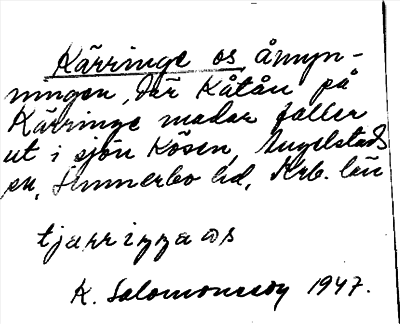 Kärringe os, åmyn-
ningen, där Kåtån på
Kärringe madar faller
ut i sjön Kösen, Angelstads
sn, Sunnerbo hd, Krb. län
tjärriŋŋa ωs
K. Salomonsson 1947.